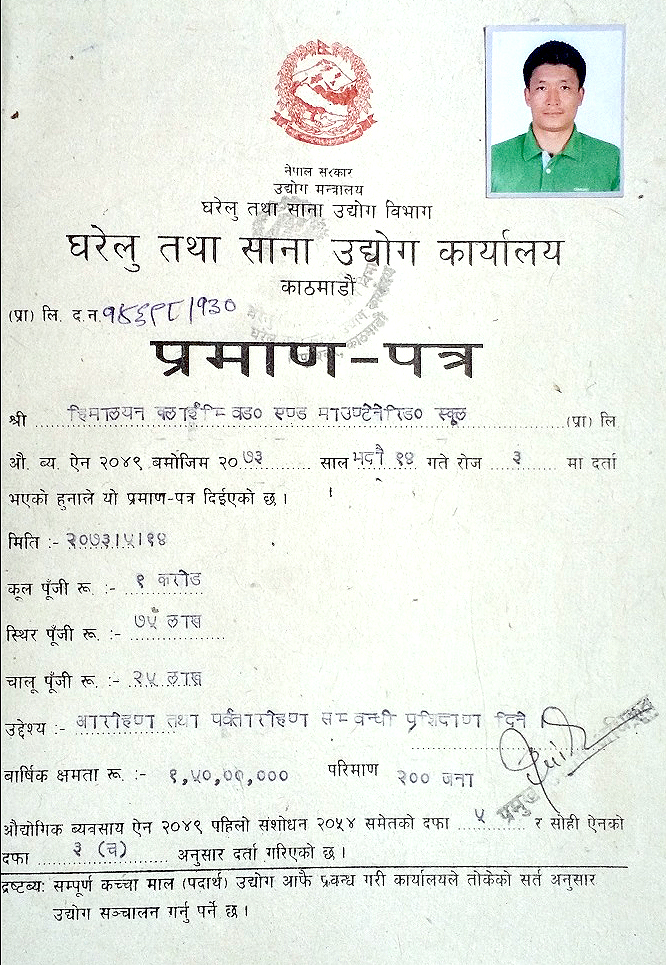 नेपाल सरकार
उद्योग मन्त्रालय
घरेलु तथा साना उद्योग विभाग
घरेलु तथा साना उद्योग कार्यालय
काठमाडौं
(प्रा) लि. द.न.
प्रमाण-पत्र
श्री हिमालयन क्लाईम्विङ० एण्ड माउण्टेनेरिङ० स्कूल (प्रा) लि
औ. ब्य. ऐन २०४९ बमोजिम २० ७३ साल भदौ १४ गते रोज ३ मा दर्ता
भएको हुनाले यो प्रमाण-पत्र दिईएको छ ।
मिति :- २०७३।५।१४
कूल पूँजी रू. :- १ करोड
स्थिर पूँजी रू. :- ७५ लाख
चालू पूँजी रू. :- २५ लाख
उद्देश्य :- आरोहण तथा पर्वतारोहण सम्वन्धी प्रशिक्षण दिने ।
बार्षिक क्षमता रू. :- १,५०,००,००० परिमाण २०० जना
औद्योगिक ब्यवसाय ऐन २०४९ पहिलो संशोधन २०५४ समेतको दफा ५ र सोही ऐनको
दफा ३ (च) अनुसार दर्ता गरिएको छ ।
द्रष्टब्य: सम्पूर्ण कच्चा माल (पदार्थ) उद्योग आफै प्रवन्ध गरी कार्यालयले तोकेको सर्त अनुसार
उद्योग सञ्चालन गर्नु पर्ने छ ।